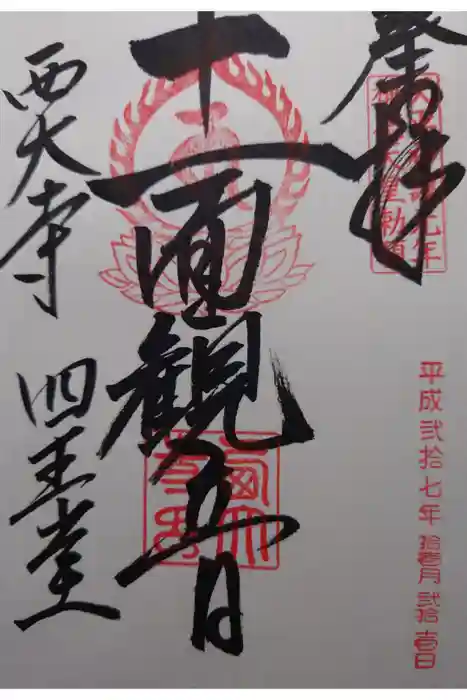 奉拝
平成弐拾七年拾壱月弐拾壱日
十一面観音
西大寺 四王堂